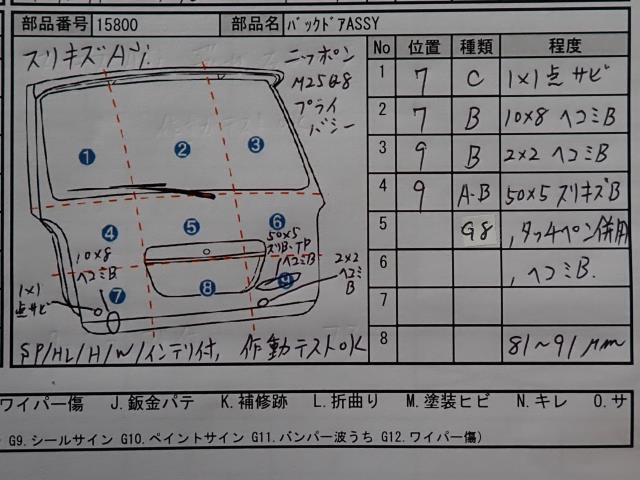 部品番号 15800 部品名 バックドアASSY
スリキズA少
ニッポン
M25G8
プライ
バシー
No 位置 種類 程度
1 7 C 1×1点サビ
2 7 B 10×8 ヘコミB
3 9 B 2×2 ヘコミB
4 9 A・B 50×5 スリキズB
5 G8 ,タッチペン併用
6 ,ヘコミB.
7
8 81~91μm
1 2 3
4 5 6
7 8 9
10×8
ヘコミB
50×5
スリB・TP
ヘコミB
2×2
ヘコミ
B
1×1
点サビ
SP/HL/H/W/インテリ付, 作動テストOK
ワイパー傷 J.鈑金パテ K.補修跡 L.折曲り M.塗装ヒビ N.キレ O.サ
G9.シールサイン G10.ペイントサイン G11.バンパー波うち G12.ワイパー傷)